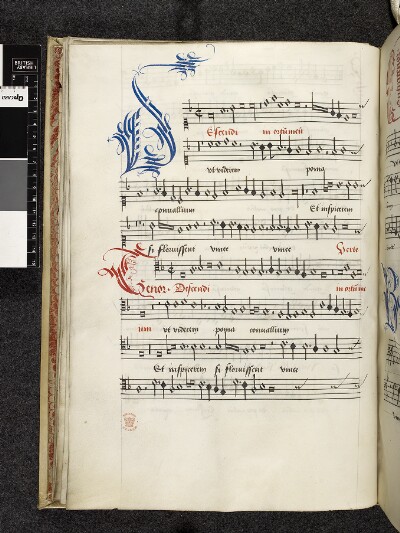 Descendi in ortu meu
ut viderem poma
convallium Et inspicerem
si floruissent vinee vinee Verte
Tenor. Descendi in ortu me
um ut viderem poma convallium
Et inspicerem si floruissent vinee
BRITISH